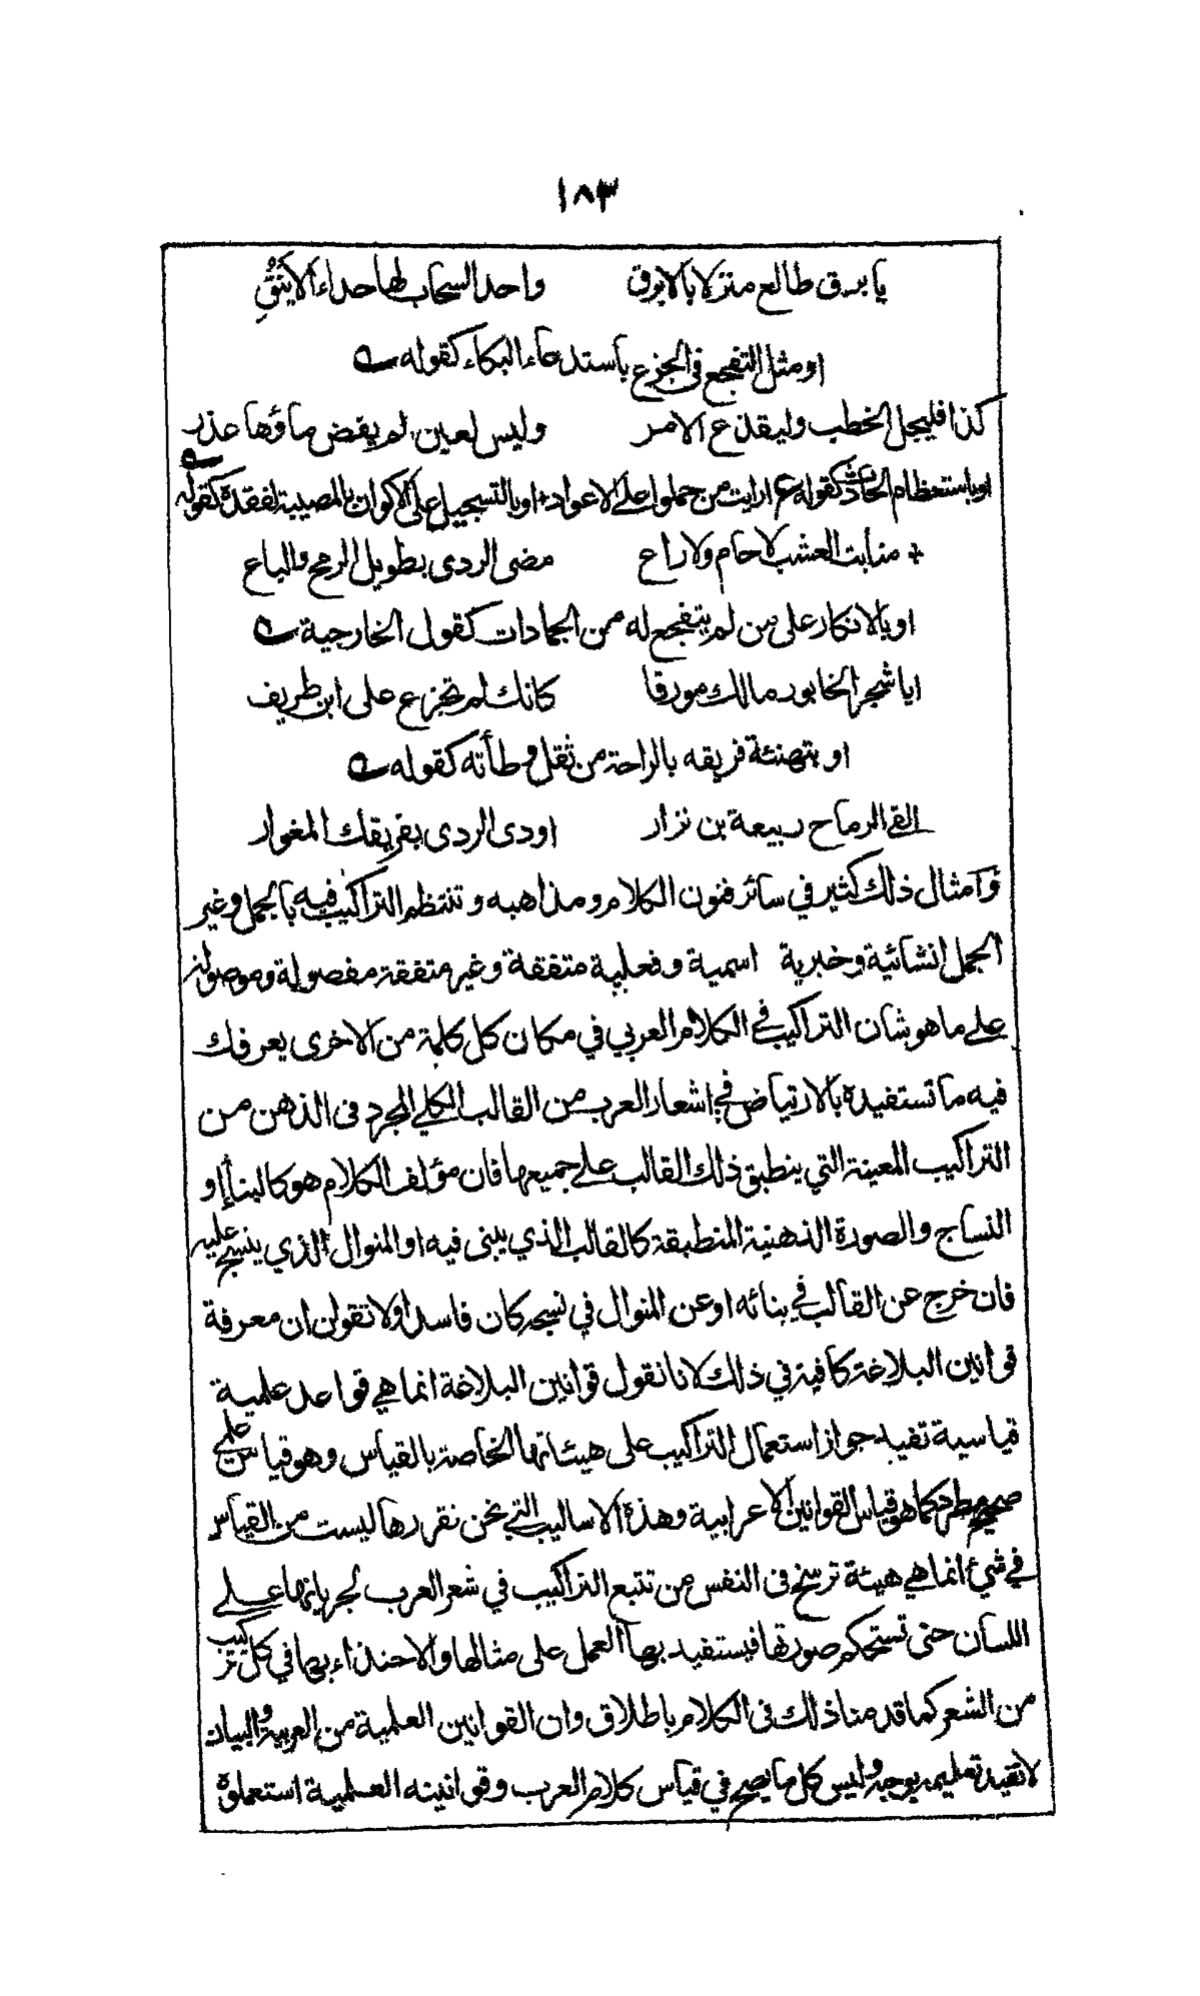 ١٨٣
يا برق طالع منزلا بالابرق واحد السحاب لها حداء الاينق
او مثل التفجع فى الجزع باستدعاء البكاء كقوله
كذا فليجل الخطب وليفدع الامر وليس لعين لم يفض ماؤها عذر
او باستعظام الحادث كقوله ع ارايت من حملوا على الاعواد + او بالتسجيل على الاكوان بالمصيبة لفقده كقوله
+ منابت العشب لا حام ولا راع مضى الردى بطويل الرمح والباع
او بالانكار على من لم يتفجع له من الجمادات كقول الخارجية
ايا شجر الخابور مالك مورقا كانك لم تجزع على ابن طريف
او بتهنئة فريقه بالراحة من ثقل وطأته كقوله
القى الرماح ربيعة بن نزار اودى الردى بفريقك المغوار
وامثال ذلك كثير في سائر فنون الكلام ومذاهبه وتنتظم التراكيب فيه بالجمل وغير
الجمل انشائية وخبرية اسمية وفعلية متفقة وغير متفقة مفصولة وموصولة
على ما هو شان التراكيب في الكلام العربي في مكان كل كلمة من الاخرى يعرفك
فيه ما تستفيده بالارتياض في اشعار العرب من القالب الكلي المجرد فى الذهن من
التراكيب المعينة التي ينطبق ذلك القالب على جميعها فان مؤلف الكلام هو كالبناء او
النساج والصورة الذهنية المنطبقة كالقالب الذي يبنى فيه او المنوال الذي ينسج عليه
فان خرج عن القالب في بنائه او عن المنوال في نسجه كان فاسدا ولا تقولن ان معرفة
قوانين البلاغة كافية في ذلك لانا نقول قوانين البلاغة انما هي قواعد علمية
قياسية تفيد جواز استعمال التراكيب على هيئاتها الخاصة بالقياس وهو قياس علمي
صحيح مطرد كما هو قياس القوانين الاعرابية وهذه الاساليب التي نحن نقررها ليست من القياس
في شئ انما هي هيئة ترسخ فى النفس من تتبع التراكيب في شعر العرب لجريانها على
اللسان حتى تستحكم صورتها فيستفيد بها العمل على مثالها والاحتذاء بها في كل تركيب
من الشعر كما قدمنا ذلك فى الكلام باطلاق وان القوانين العلمية من العربية والبيان
لا تفيد تعليمه بوجه وليس كل ما يصح في قياس كلام العرب وقوانينه العلمية استعملوه